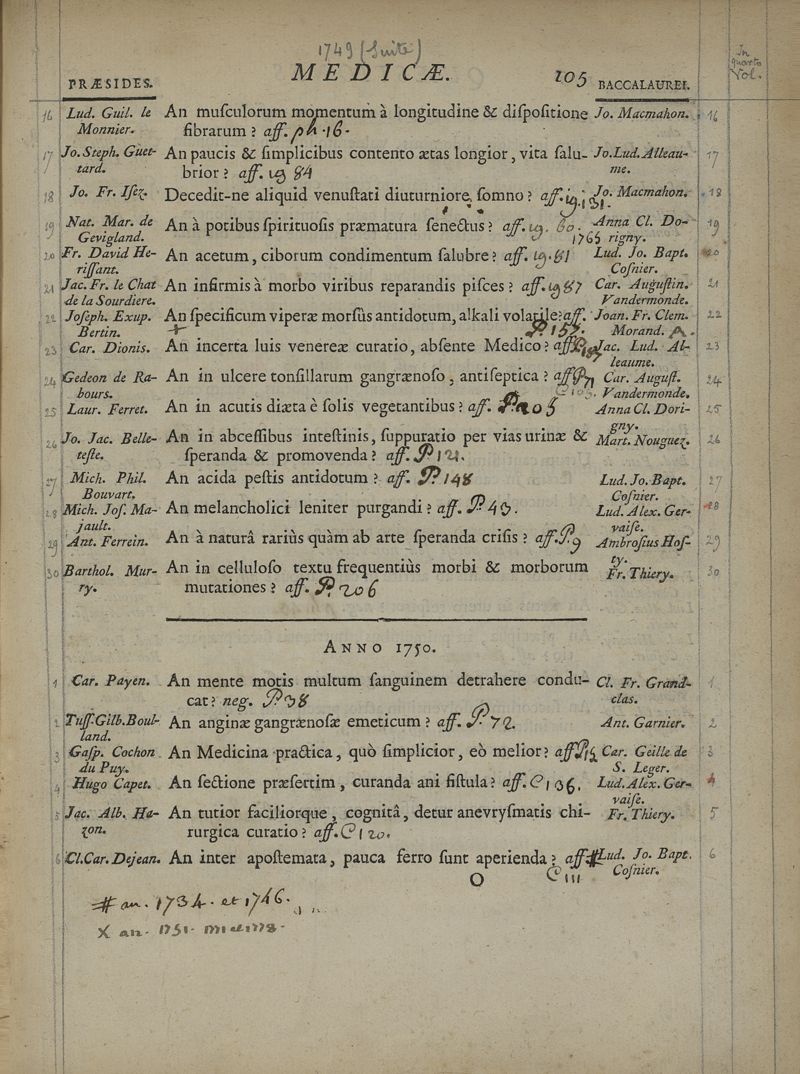 1749 (Suite)
In quarto Vol.
PRÆSIDES. MEDICÆ. 105 BACCALAUREI.
16 Lud. Guil. le An muſculorum momentum à longitudine & diſpoſitione Jo. Macmahon. 16
Monnier. fibrarum ? aff.
17 Jo. Steph. Guet- An paucis & ſimplicibus contento ætas longior, vita ſalu- Jo. Lud. Alleau- 17
tard. brior ? aff. 84 me.
18 Jo. Fr. Iſez. Decedit-ne aliquid venuſtati diuturniore, ſomno ? aff. Jo. Macmahon. 18
19 Nat. Mar. de An à potibus ſpirituoſis præmatura ſenectus ? aff. Anna Cl. Do- 19
Gevigland. 1765 rigny.
20 Fr. David He- An acetum, ciborum condimentum ſalubre ? aff. Lud. Jo. Bapt. 20
riſſant. Coſnier.
21 Jac. Fr. le Chat An infirmis à morbo viribus reparandis piſces ? aff. Car. Auguſtin. 21
de la Sourdiere. Vandermonde.
22 Joſeph. Exup. An ſpecificum viperæ morſûs antidotum, alkali volatile ? aff. Joan. Fr. Clem. 22
Bertin. Morand.
23 Car. Dionis. An incerta luis venereæ curatio, abſente Medico ? aff. Jac. Lud. Al- 23
leaume.
24 Gedeon de Ra- An in ulcere tonſillarum gangrænoſo, antiſeptica ? aff. Car. Auguſt. 24
bours. Vandermonde.
25 Laur. Ferret. An in acutis diæta è ſolis vegetantibus ? aff. Anna Cl. Dori- 25
gny.
26 Jo. Jac. Belle- An in abceſſibus inteſtinis, ſuppuratio per vias urinæ & Mart. Nouguez. 26
teſte. ſperanda & promovenda ? aff. P 121.
27 Mich. Phil. An acida peſtis antidotum ? aff. P 148 Lud. Jo. Bapt. 27
Bouvart. Coſnier.
28 Mich. Joſ. Ma- An melancholici leniter purgandi ? aff. Lud. Alex. Ger- 28
jault. vaiſe.
29 Ant. Ferrein. An à naturâ rariùs quàm ab arte ſperanda criſis ? aff. P. 9 Ambroſius Hoſ- 29
ty.
30 Barthol. Mur- An in celluloſo textu frequentiùs morbi & morborum Fr. Thiery. 30
ry. mutationes ? aff. P. 206
ANNO 1750.
1 Car. Payen. An mente motis multum ſanguinem detrahere condu- Cl. Fr. Grand- 1
cat ? neg. P 38 clas.
2 Tuſſ. Gilb. Boul- An anginæ gangrænoſæ emeticum ? aff. P. 72. Ant. Garnier. 2
land.
3 Gaſp. Cochon An Medicina practica, quò ſimplicior, eò melior ? aff. Car. Geille de 3
du Puy. S. Leger.
4 Hugo Capet. An ſectione præſertim, curanda ani fiſtula ? aff. P 136. Lud. Alex. Ger- 4
vaiſe.
5 Jac. Alb. Ha- An tutior faciliorque, cognitâ, detur anevryſmatis chi- Fr. Thiery. 5
zon. rurgica curatio ? aff. P 120.
6 Cl. Car. Dejean. An inter apoſtemata, pauca ferro ſunt aperienda ? aff. # Lud. Jo. Bapt. 6
O P 111 Coſnier.
# an. 1734. et 1746.
X an. 1751.